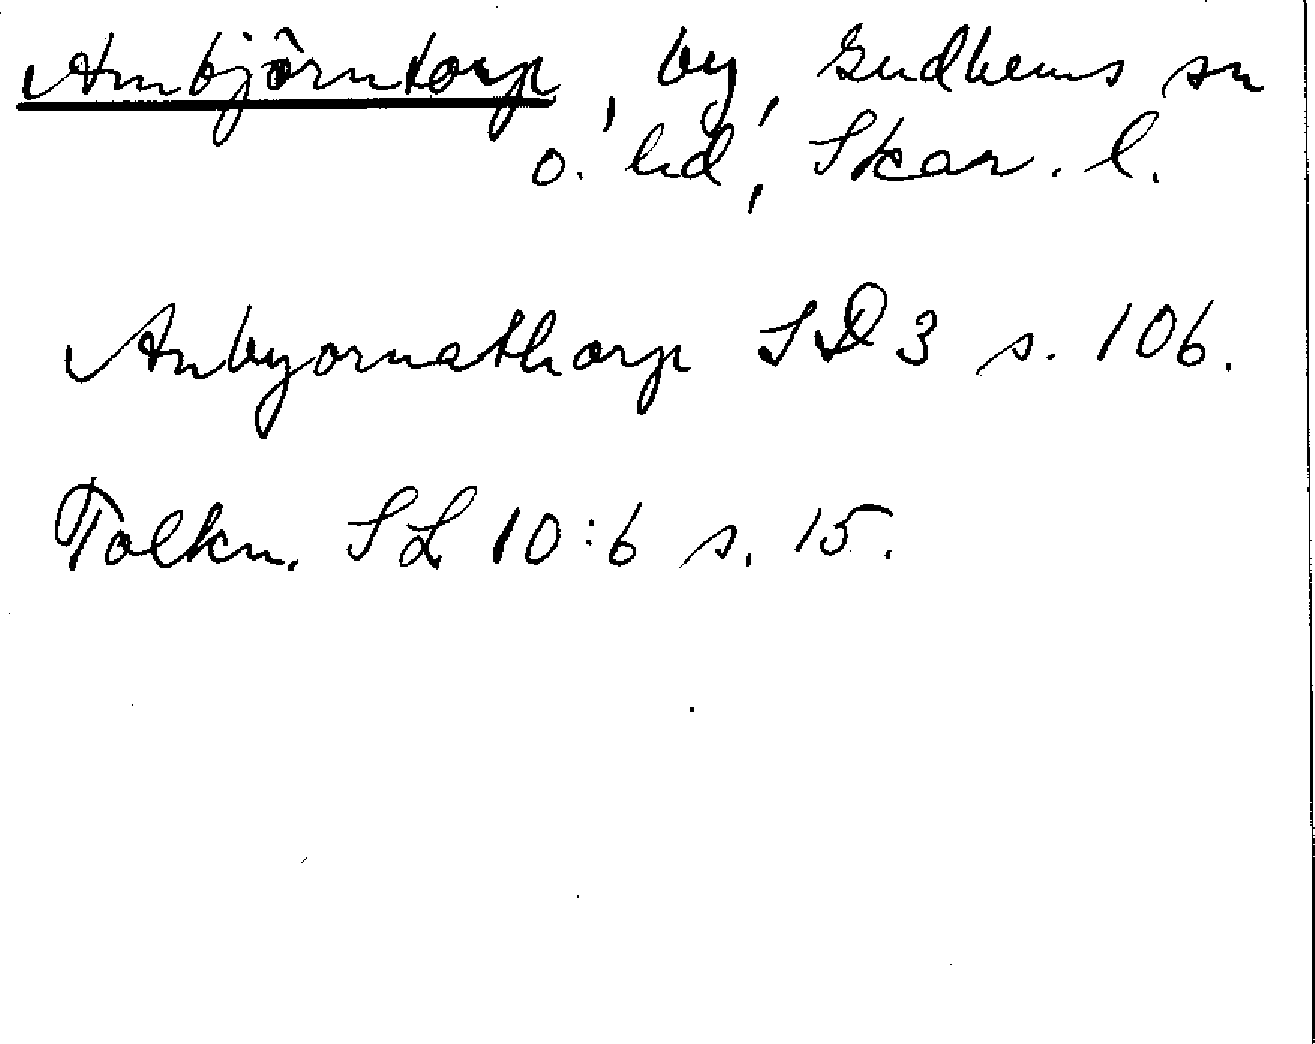 Ambjörntorp, by, Gudhems sn
o. hd, Skar. l.
Anbyornathorp SD 3 s. 106.
Tolkn. SL 10:6 s. 15.